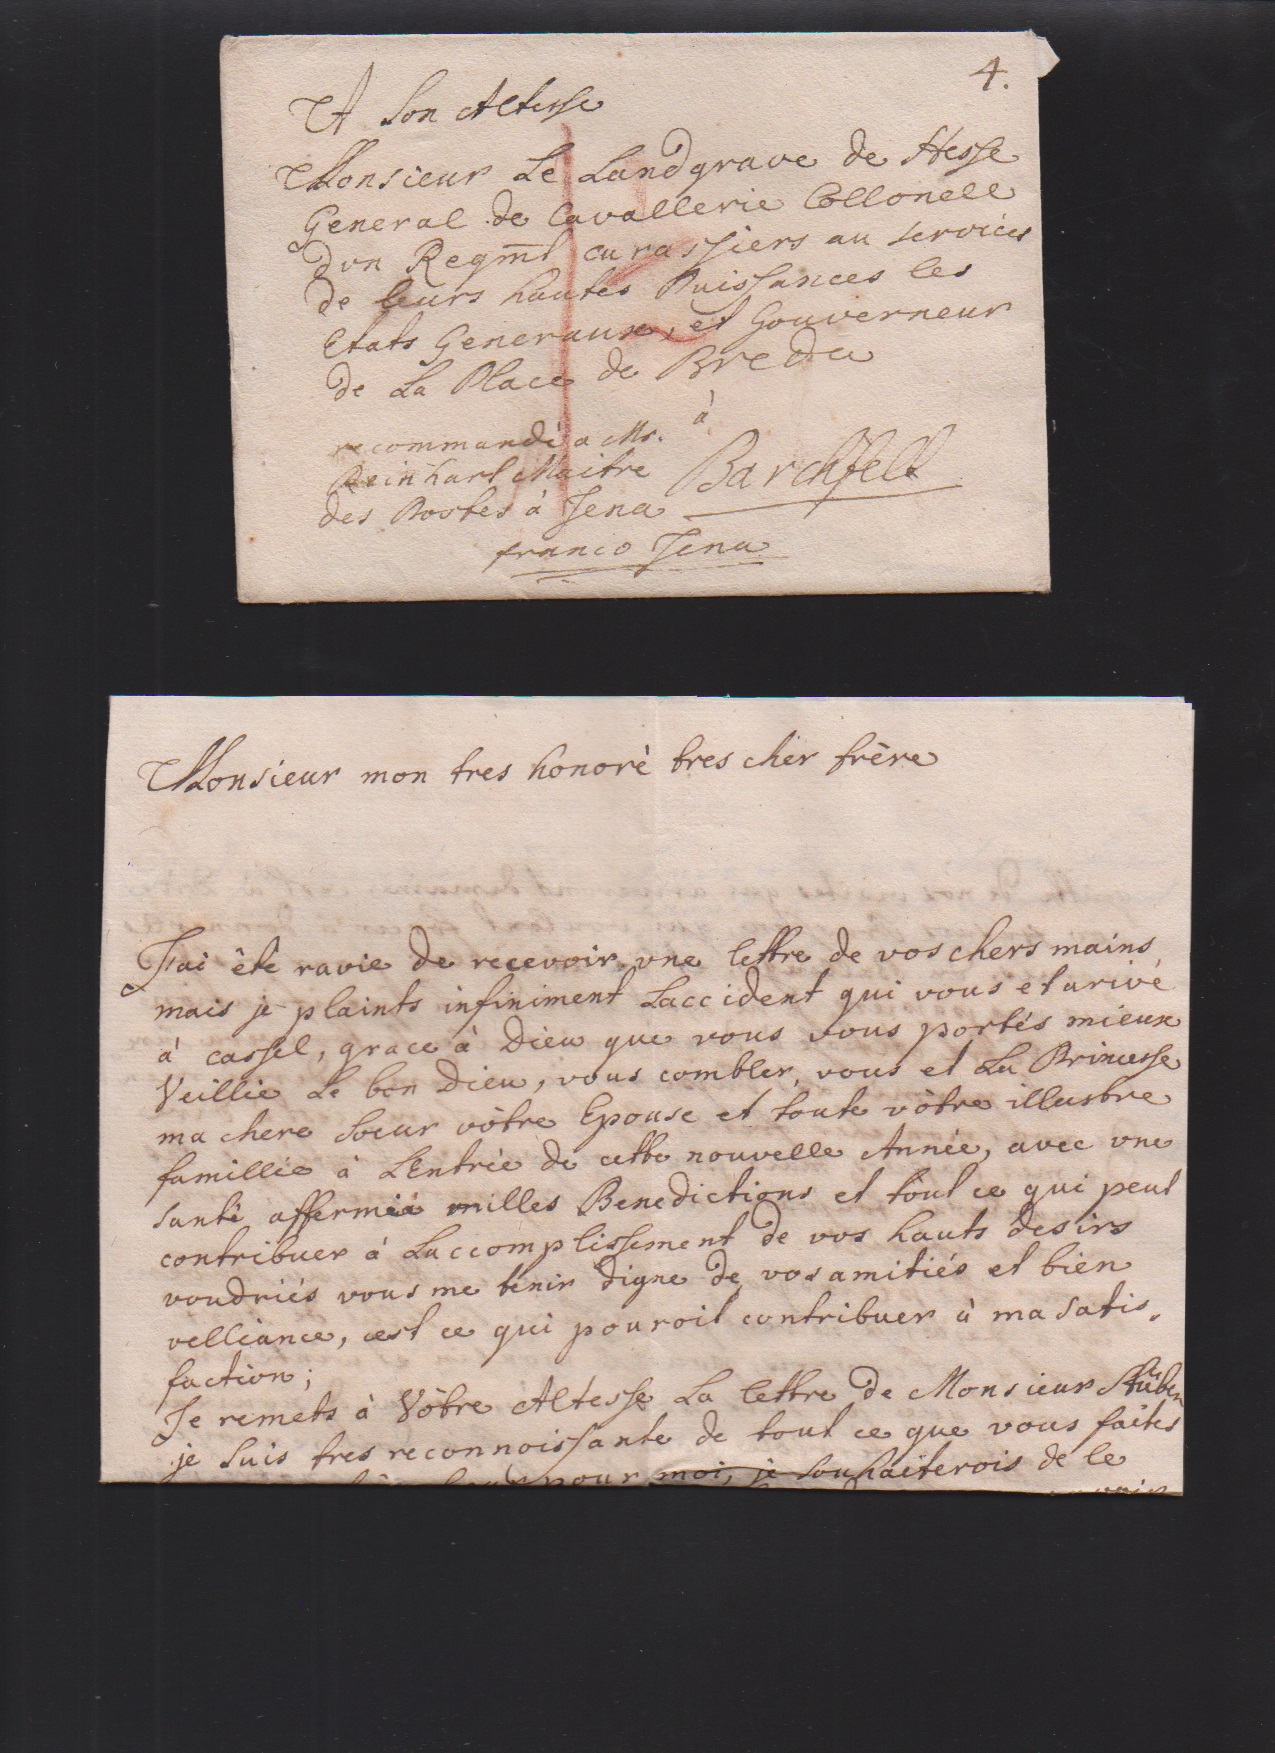 4.
A Son Altesse
Monsieur Le Landgrave de Hesse
General de Cavallerie Collonell
dvn Regmt curassiers au services
de leurs hautes Puissances les
Etats Generaux, et Gouverneur
de La Place de Breda
à
recommandè a Mr.
Reinhart Maitre
des Postes à Jena
Barchfeld
franco Jena
Monsieur mon tres honorè tres cher frère
J'ai êtè ravie de recevoir vne lettre de vos chers mains
mais je plaints infiniment Laccident qui vous et arivé
à cassel, grace à Dieu que vous vous portés mieux
Veillie Le bon Dieu, vous combler, vous et La Princesse
ma chere Soeur vòtre Epouse et toute vòtre illustre
famillie à LEntrée de cette nouvelle Année, avec vne
Santè affermie milles Benedictions et tout ce qui peut
contribuer à Laccomplissement de vos hauts desirs
voudriés vous me tenir digne de vos amitiés et bien
velliance, cest ce qui pouroit contribuer à ma Satis,
faction;
Je remets à Vòtre Altesse La lettre de Monsieur Stüben
je Suis tres reconnoissante de tout ce que vous faites
pour moi, je Souhaiterois de le